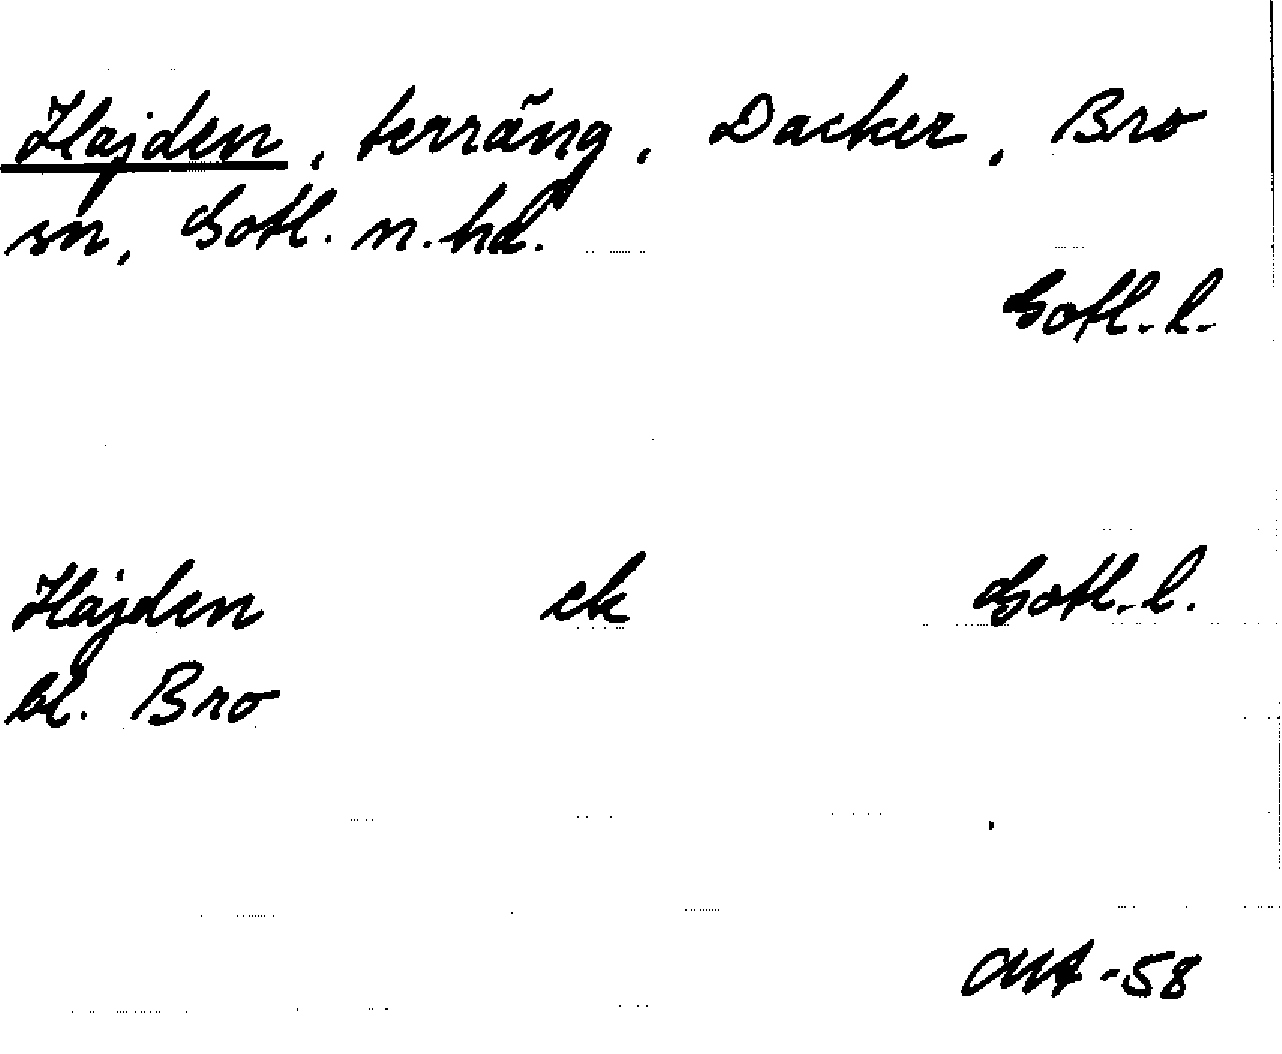 Hajden, terräng, Dacker, Bro
sn, Gotl. n. hd.
Gotl. l.
Hajden ek Gotl. l.
bl. Bro
-58